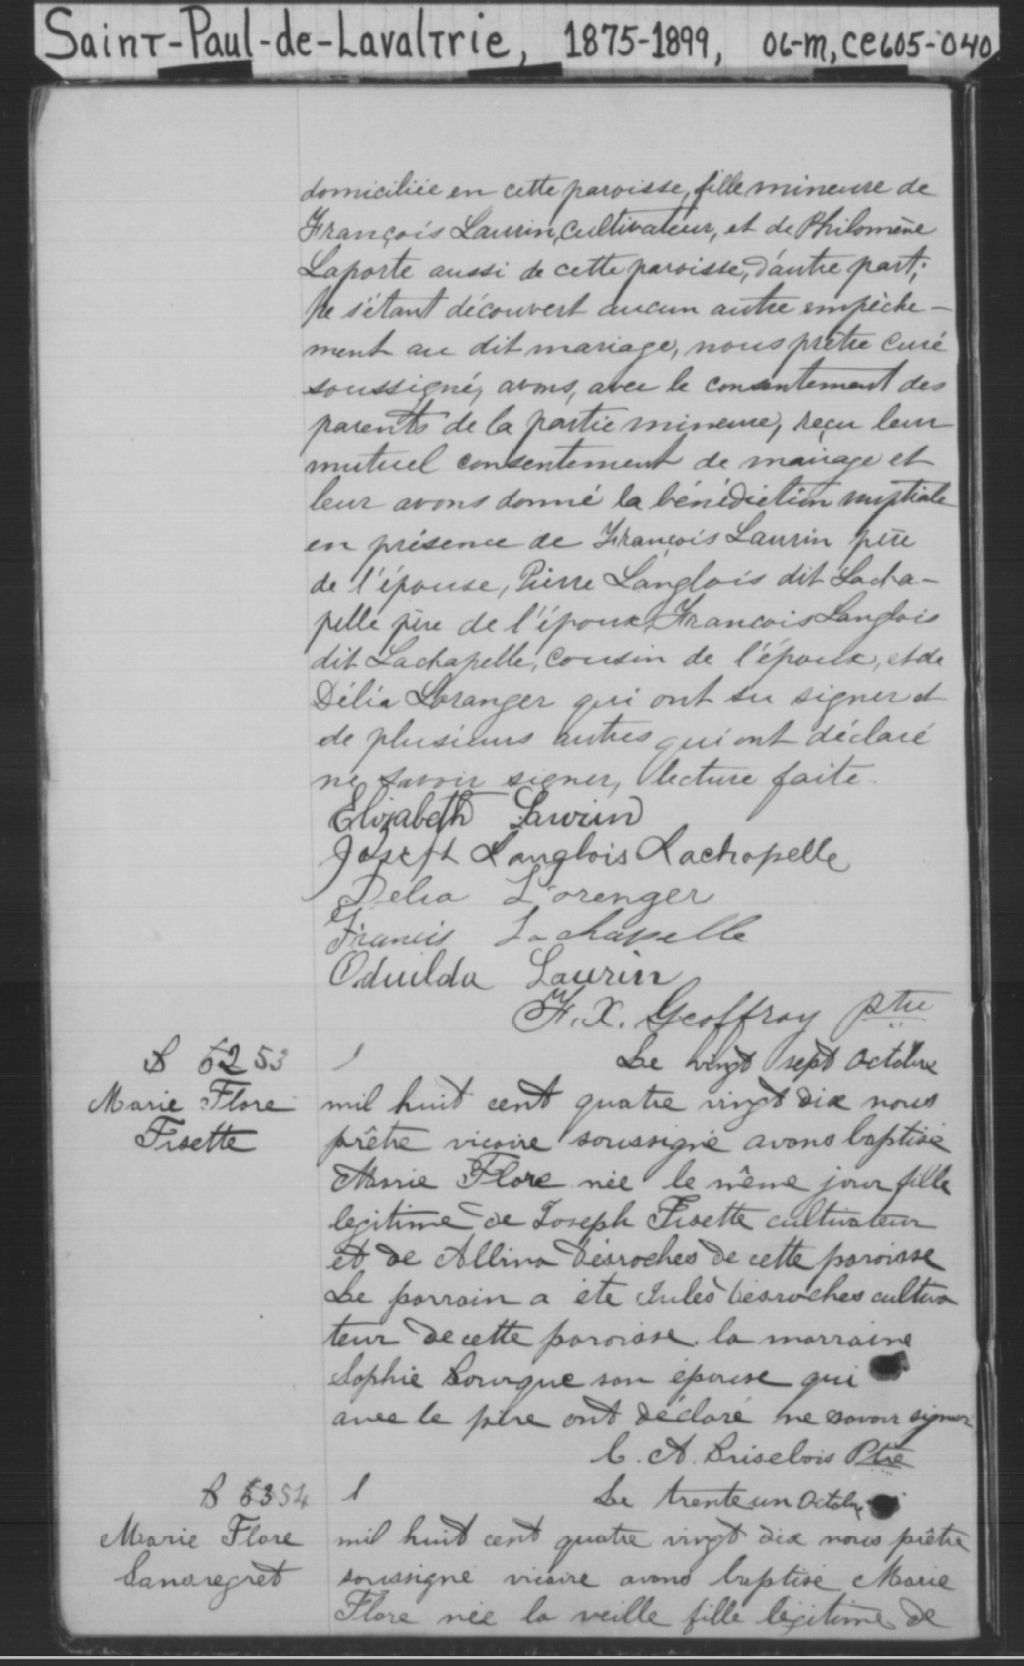 Saint-Paul-de-Lavaltrie, 1875-1899, 06-m, CE605-040
domiciliée en cette paroisse, fille mineure de
François Laurin, cultivateur, et de Philomène
Laporte aussi de cette paroisse, d'autre part;
Ne s'étant découvert aucun autre empêche-
ment au dit mariage, nous prêtre curé
soussigné, avons, avec le consentement des
parents de la partie mineure, reçu leur
mutuel consentement de mariage et
leur avons donné la bénédiction nuptiale
en présence de François Laurin père
de l'épouse, Pierre Langlois dit Lacha-
pelle père de l'époux, François Langlois
dit Lachapelle, cousin de l'époux, et de
Délia Loranger qui ont su signer et
de plusieurs autres qui ont déclaré
ne savoir signer, lecture faite.
Elizabeth Laurin
Joseph Langlois Lachapelle
Delia Lorenger
Francis Lachapelle
Oduilda Laurin
F. X. Geoffroy ptre
B 5253
Marie Flore
Fisette
Le vingt sept Octobre
mil huit cent quatre vingt dix nous
prêtre vicaire soussigné avons baptisé
Marie Flore née le même jour fille
legitime de Joseph Fisette cultivateur
et de Albina Desroches de cette paroisse
Le parrain a été Jules Desroches cultiva
teur de cette paroisse la marraine
Sophie Bourque son épouse qui
avec le père ont déclaré ne savoir signer
C. A. Brisebois Ptre
B 5354
Marie Flore
Sansregret
Le trente un Octobre
mil huit cent quatre vingt dix nous prêtre
soussigné vicaire avons baptisé Marie
Flore née la veille fille légitime de